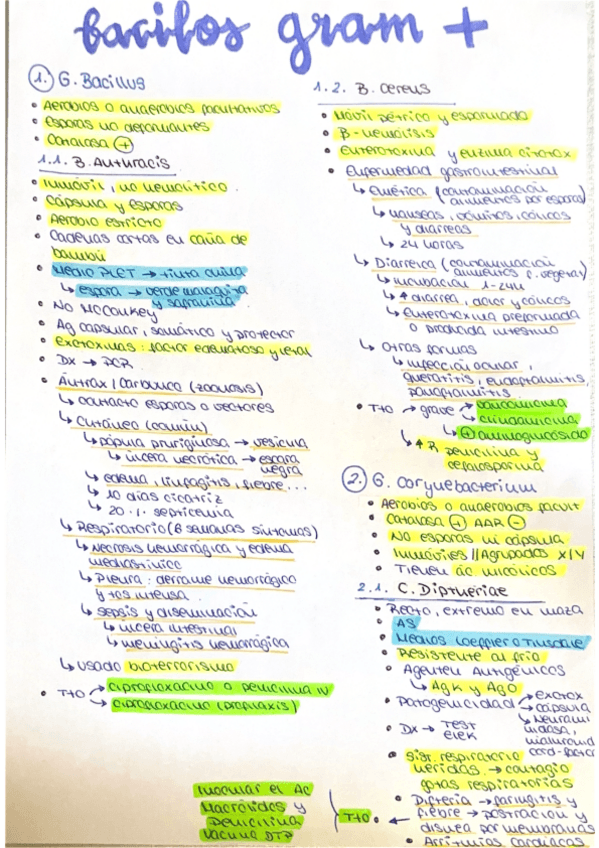 bacilos gram +
1. G. Bacillus
• Aerobios o anaerobios facultativos
• Esporas no deformantes
• Catalasa +
1.1. B. Anthracis
• Inmóvil, no hemolítico.
• Cápsula y esporas
• Aerobio estricto
• Cadenas cortas en caña de
bambú
• Medio PLET → tinta china
↳ espora → verde malaquita
y safranina
• No McConkey
• Ag capsular, somático y protector
• Exotoxinas: factor edematoso y letal
• DX → PCR
• Ántrax / Carbunco (zoonosis)
↳ contacto esporas o vectores
↳ Cutáneo (común)
↳ pápula pruriginosa → vesícula
↳ úlcera necrótica → escara
negra
↳ edema, linfagitis, fiebre...
↳ 10 días cicatriz
↳ 20% septicemia
↳ Respiratorio (6 semanas síntomas)
↳ Necrosis hemorrágica y edema
mediastínico
↳ Pleura: derrame hemorrágico
y tos intensa
↳ sepsis y diseminación
↳ úlcera intestinal
↳ meningitis hemorrágica
↳ usado bioterrorismo
• Tto → ciprofloxacino o penicilina IV
↳ ciprofloxacino (profilaxis)
1.2. B. cereus
• Móvil pétrico y esporulado
• B-hemólisis
• Enterotoxina y enzima citotox
• Enfermedad gastrointestinal
↳ Emética (contaminación
alimentos por esporas)
↳ náuseas, vómitos, cólicos
y diarreas
↳ 24 horas
↳ Diarreica (contaminación
alimentos c. vegetal)
↳ incubación 1-24h
↳ ↑ diarrea, dolor y cólicos
↳ Enterotoxina preformada
o producida intestino
↳ Otras formas
↳ infección ocular,
queratitis, endoftalmitis,
panoftalmitis.
• Tto → grave → vancomicina
↳ clindamicina
↳ + aminoglucósido
↳ ↑ R penicilina y
cefalosporina
2. G. Corynebacterium
• Aerobios o anaerobios facult
• Catalasa + AAR -
• No esporas ni cápsula
• Inmóviles // Agrupados X/Y
• Tienen ác micólicos
2.1. C. Diptheriae
• Recto, extremo en maza
• AS
• Medios Loeffler o Tinsdale
• Resistente al frío
• Agentes Antigénicos
↳ Ag K y Ag O
• Patogenicidad → exotox
→ cápsula
↳ Neurami
nidasa,
hialuronid
cord-factor
• DX → TEST
ELEK
• Sist. respiratorio
heridas → contagio
gotas respiratorias
• Difteria → faringitis y
fiebre → postración y
disnea por membranas
• Arritmias cardíacas
Tto
Inocular el Ac
Macrólidos y
Penicilina
Vacuna DTP